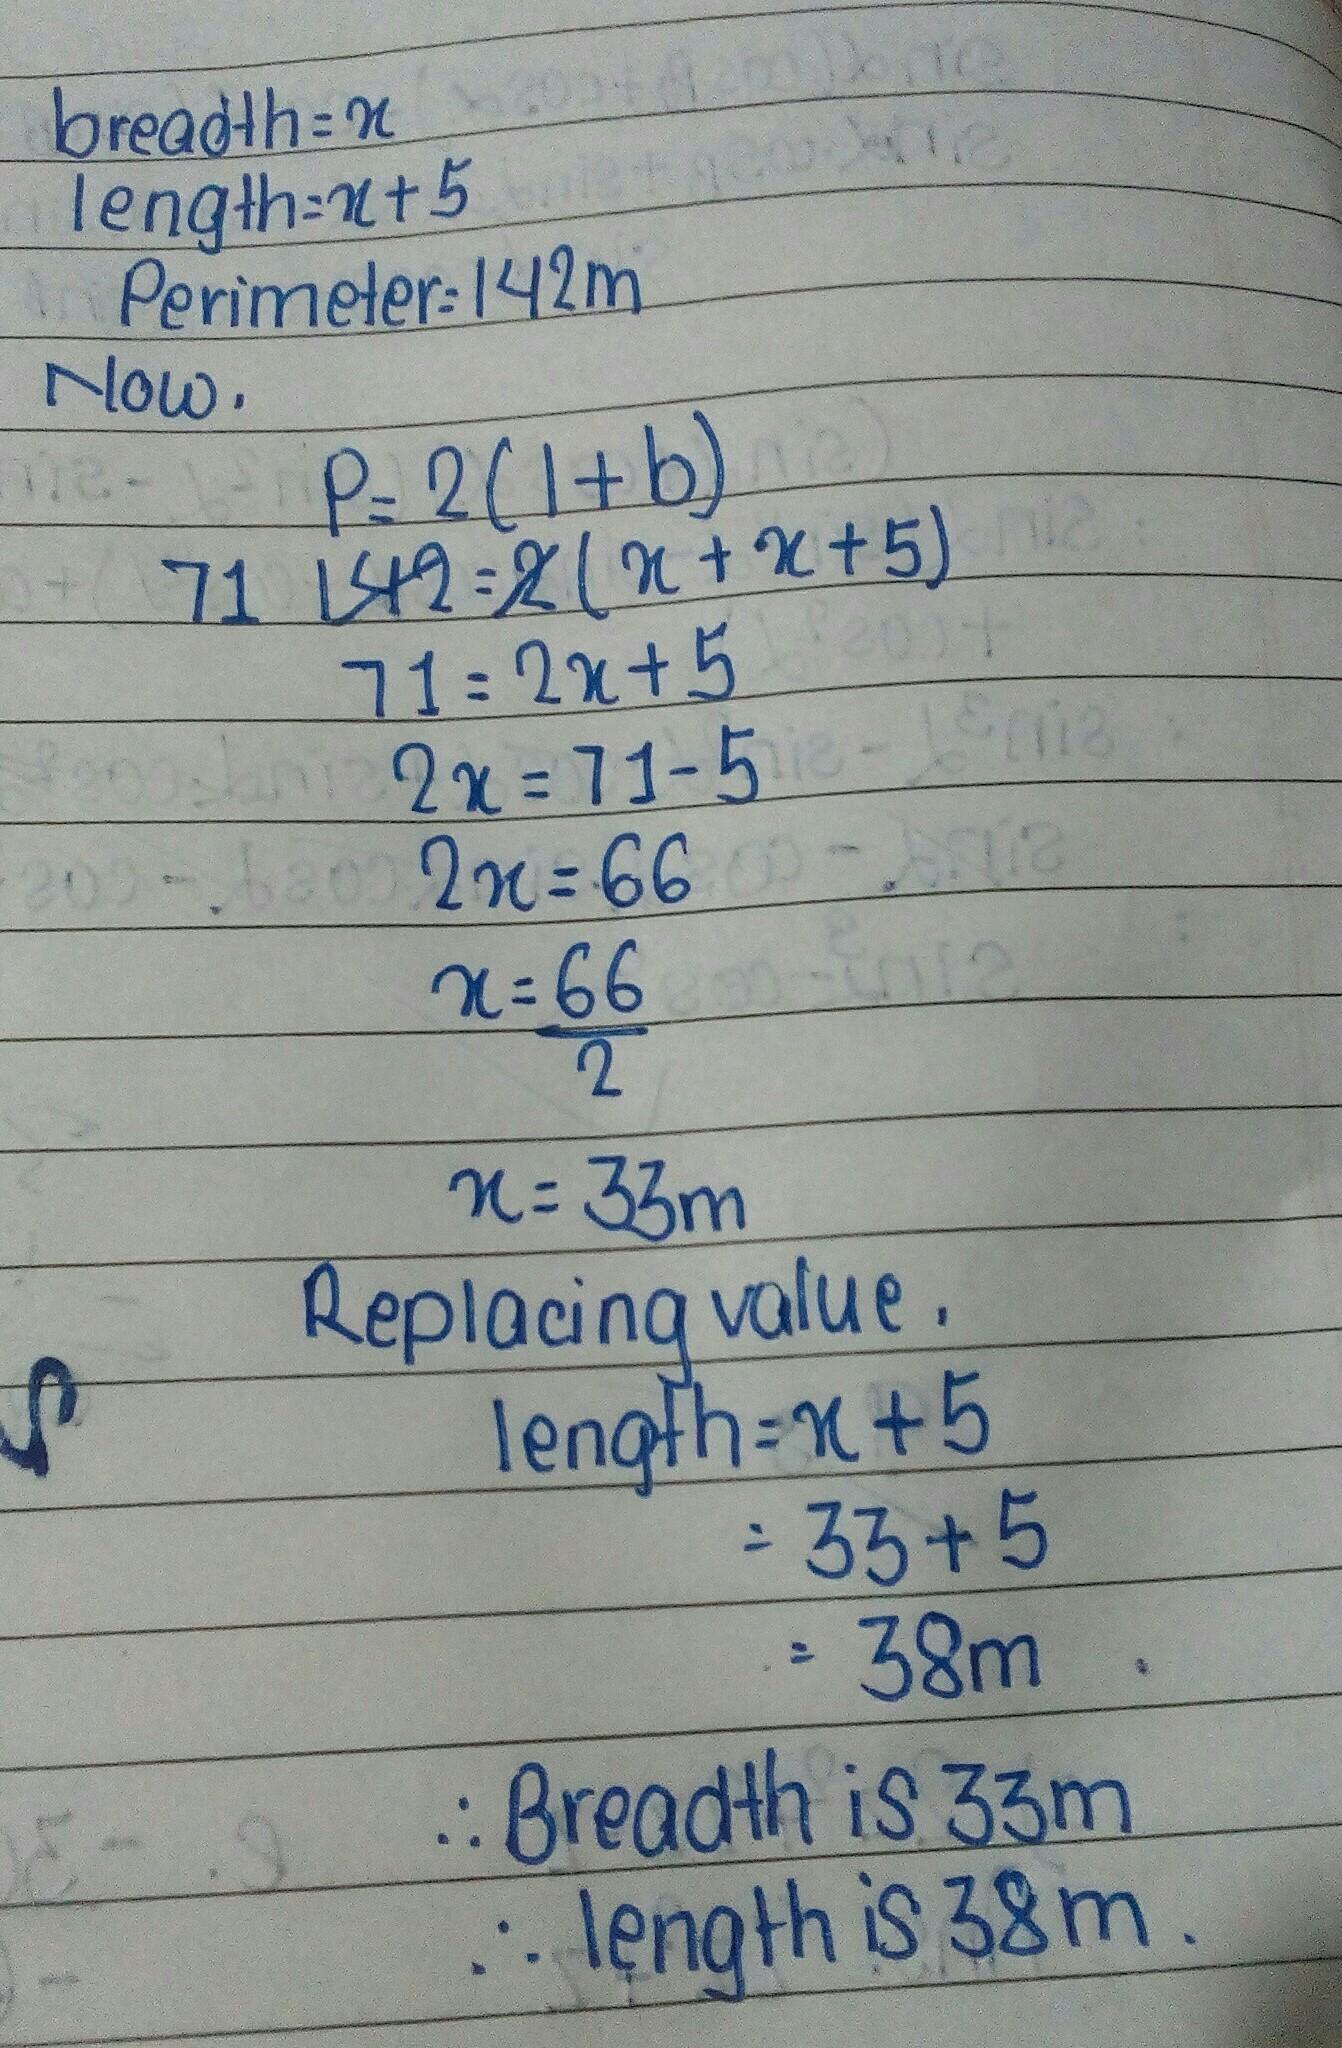 breadth=x
length=x+5
Perimeter=142m
Now.
P=2(l+b)
71 142=2(x+x+5)
71=2x+5
2x=71-5
2x=66
x=66
2
x=33m
Replacing value.
length=x+5
=33+5
=38m.
∴Breadth is 33m
∴length is 38m.